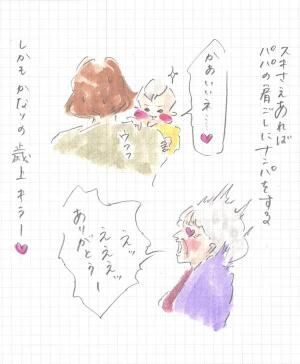 スキさえあれば
パパの肩ごしにナンパをする
かあいいネ…♥
ウフフ
えッ
えええッ
ありがとうー
しかもかなりの歳上キラー♥